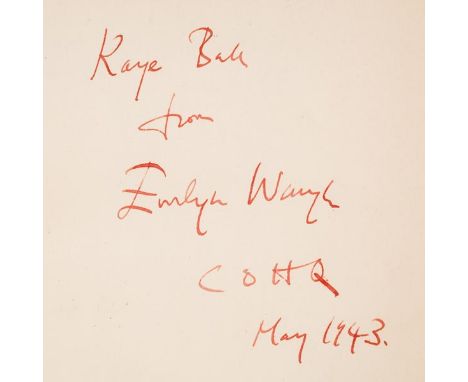 Kaye Ball
from
Evelyn Waugh
C O H Q
May 1943.